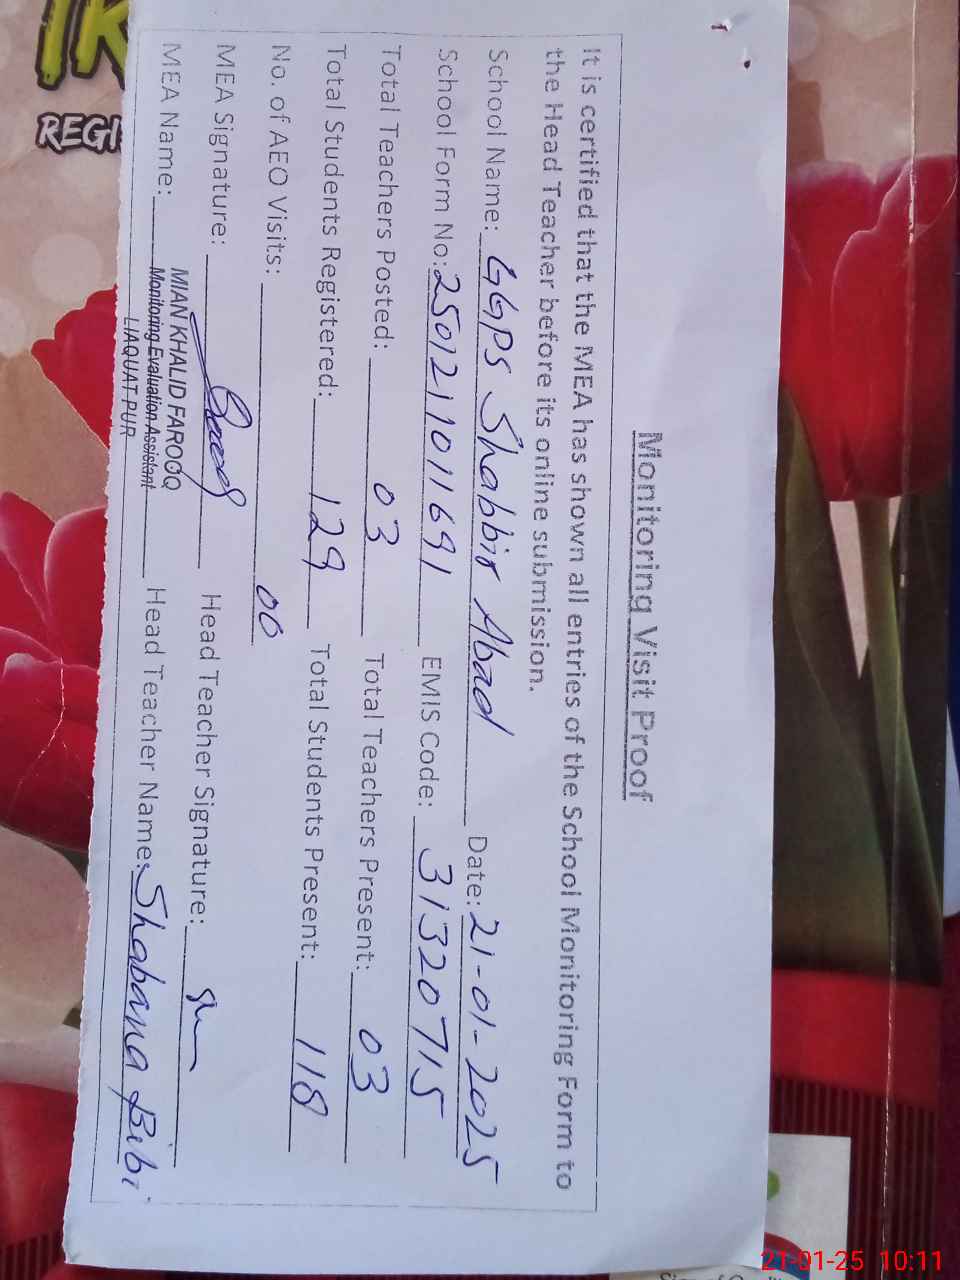 Monitoring Visit Proof
It is certified that the MEA has shown all entries of the School Monitoring Form to
the Head Teacher before its online submission.
School Name: GGPS Shabbir Abad Date: 21-01-2025
School Form No: 25012110101691 EMIS Code: 31320715
Total Teachers Posted: 03 Total Teachers Present: 03
Total Students Registered: 129 Total Students Present: 118
No. of AEO Visits: 00
MEA Signature: Head Teacher Signature:
MEA Name: MIAN KHALID FAROOQ Head Teacher Name: Shabana Bibi
Monitoring Evaluation Assistant
LIAQUAT PUR
REGI
21-01-25 10:11